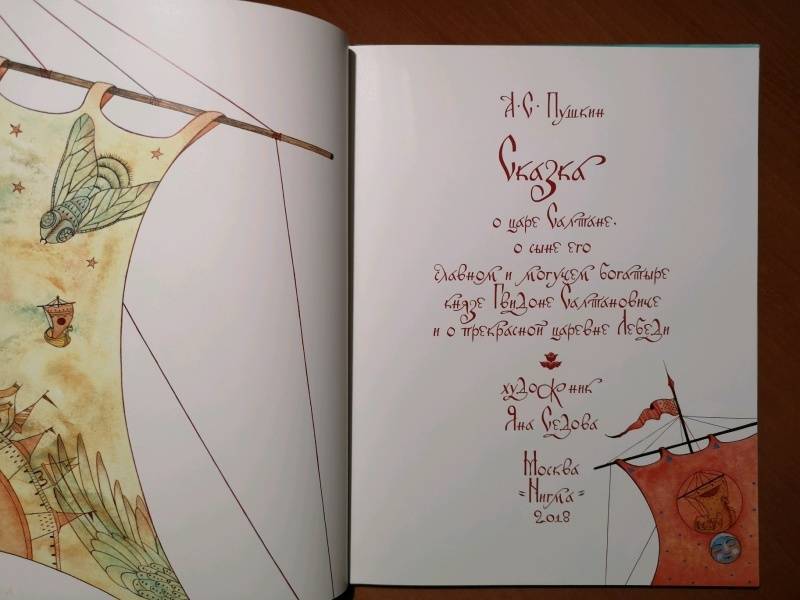 А·С· Пушкин
Сказка
о царе Салтане,
о сыне его
славном и могучем богатыре
князе Гвидоне Салтановиче
и о прекрасной царевне Лебеди
художник
Яна Седова
Москва
"Нигма"
2018